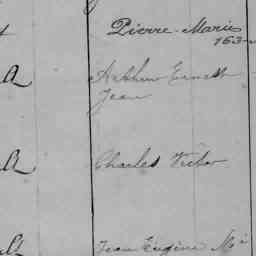 Pierre-Marie
163
Arthur Ernest
Jean
Charles Victor
Jean Eugène